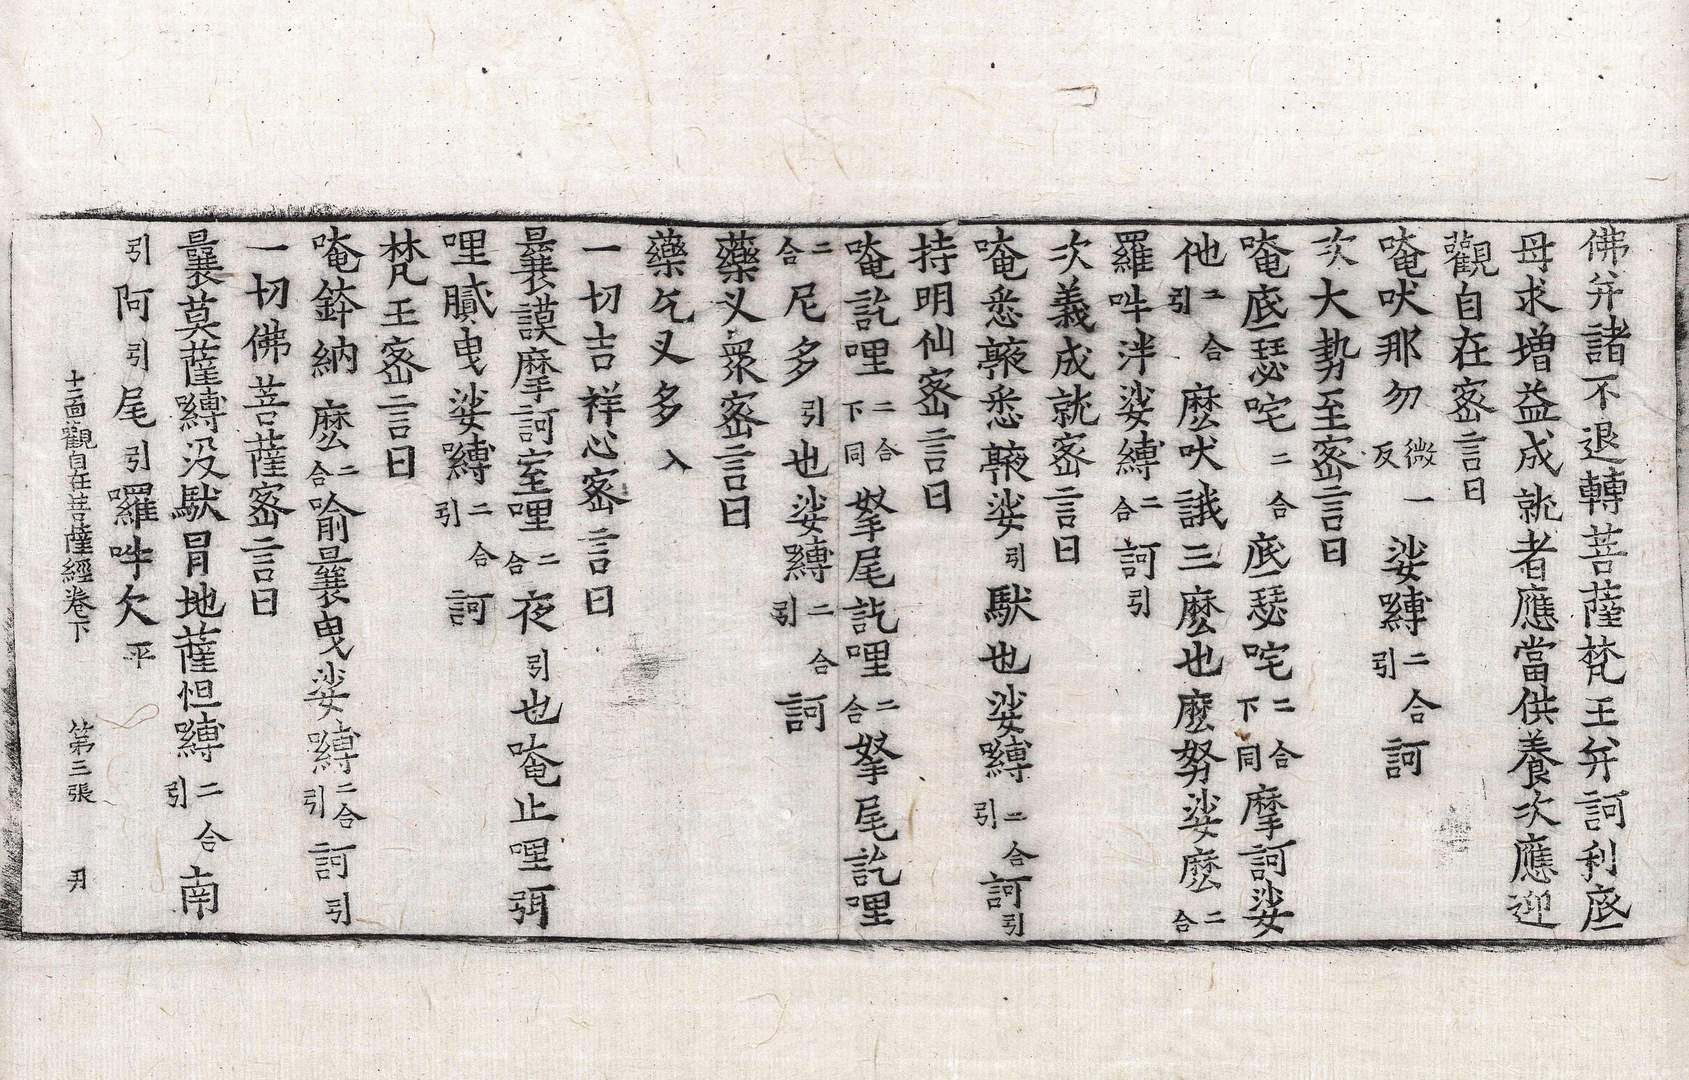 佛并諸不退轉菩薩梵王并訶利底
母求增益成就者應當供養次應迎
觀自在密言曰
唵吠那勿微一反娑嚩二合引訶
次大勢至密言曰
唵底瑟咤二合底瑟咤二合下同摩訶娑
他二合引麽吠誐三麽也麽努娑麽二合
羅吽泮娑嚩二合訶引
次義成就密言曰
唵悉𠻴悉𠻴娑引馱也娑嚩二合引訶引
持明仙密言曰
唵訖哩二合下同拏尾訖哩二合拏尾訖哩
二合尼多引也娑嚩二合引訶
藥叉眾密言曰
藥乞叉多入
一切吉祥心密言曰
曩謨摩訶室哩二合夜引也唵止哩弭
哩膩曳娑嚩二合引訶
梵王密言曰
唵鉢納麽二合喻曩曳娑嚩二合引訶引
一切佛菩薩密言曰
曩莫薩嚩没馱冒地薩怛嚩二合引南
引阿引尾引囉吽欠平
十一面觀自在菩薩經卷下　第三張　丹